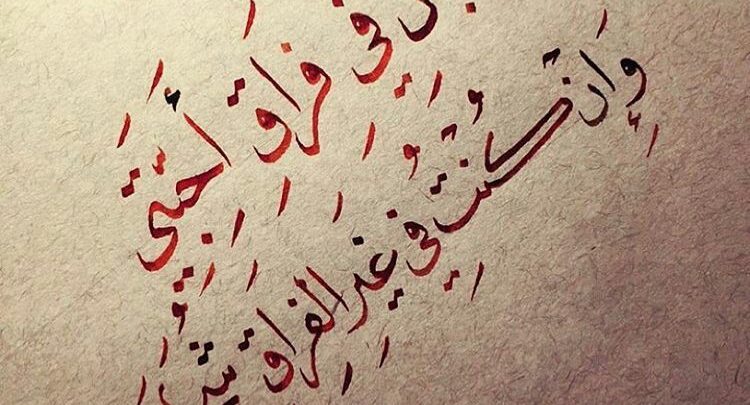 في فراقِ أَحِبَّتي
وَإِن كُنتُ في غَيرِ الفِراقِ